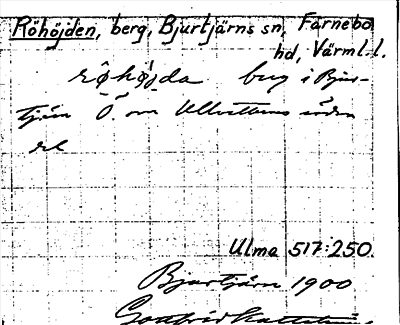 Röhöjden, berg, Bjurtjärns sn, Färnebo
hd, Värml. l.
röhöjda berg i Bjur-
tjärn Ö. om Ullvettern södra
del
Ulma 517:250.
Bjurtjärn 1900
Gottfrid Kallstenius